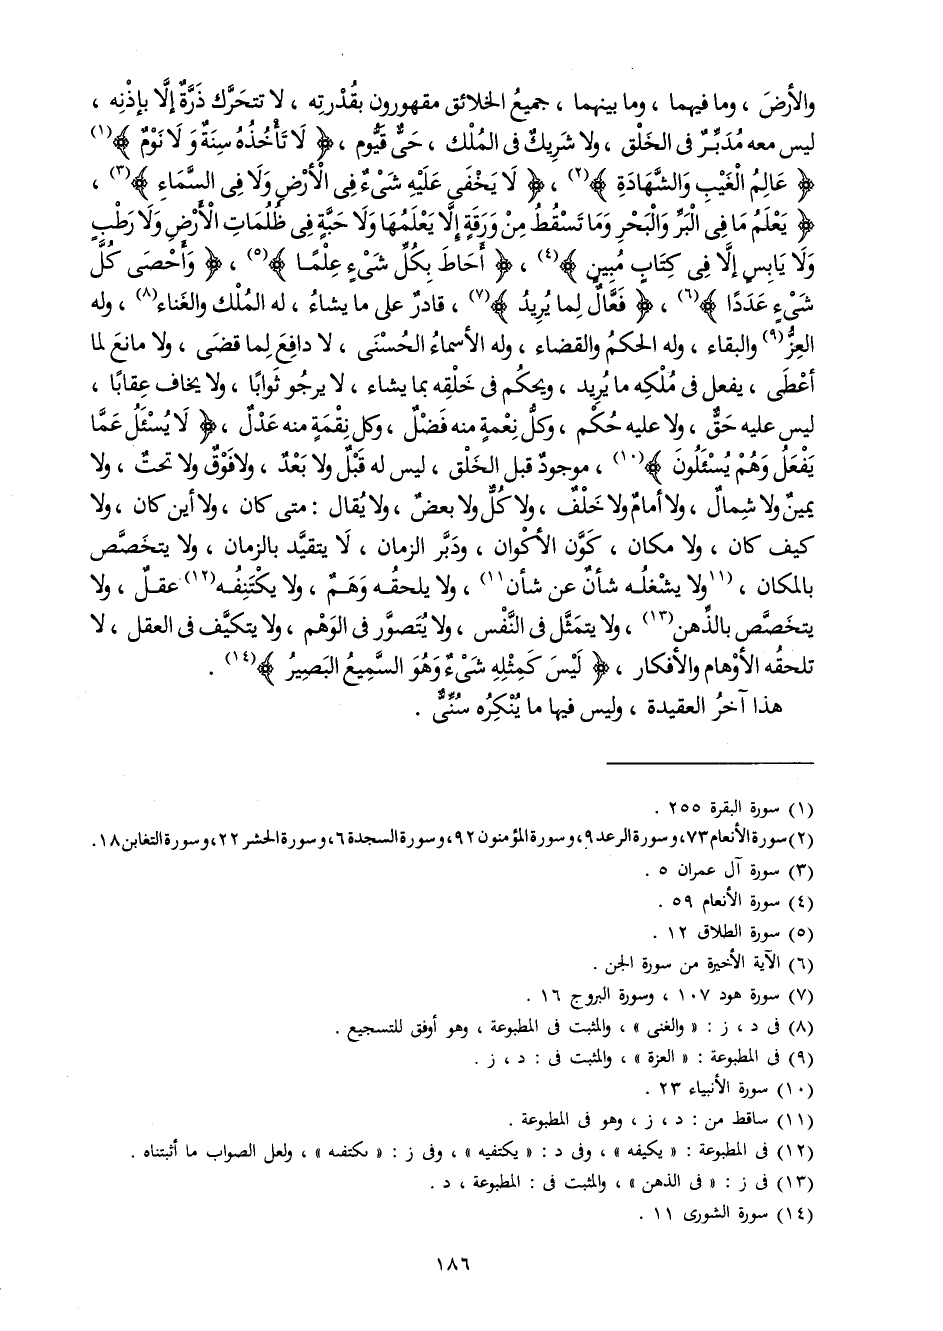 والأرضَ ، وما فيهما ، وما بينهما ، جميعُ الخلائق مقهورون بقُدْرتِه ، لا تتحَرَّك ذَرَّةٌ إلَّا بإذْنِه ،
ليس معه مُدَبِّرٌ فى الخَلْق ، ولا شَرِيكٌ فى المُلْك ، حَىٌّ قَيُّوم ، ﴿ لَا تَأْخُذُهُ سِنَةٌ وَ لَا نَوْمٌ ﴾(١)
﴿ عَالِمُ الْغَيْبِ وَالشَّهَادَةِ ﴾(٢) ، ﴿ لَا يَخْفَى عَلَيْهِ شَىْءٌ فِى الْأَرْضِ وَلَا فِى السَّمَاءِ ﴾(٣) ،
﴿ يَعْلَمُ مَا فِى الْبَرِّ وَالْبَحْرِ وَمَا تَسْقُطُ مِنْ وَرَقَةٍ إِلَّا يَعْلَمُهَا وَلَا حَبَّةٍ فِى ظُلُمَاتِ الْأَرْضِ وَلَا رَطْبٍ
وَلَا يَابِسٍ إِلَّا فِى كِتَابٍ مُبِينٍ ﴾(٤) ، ﴿ أَحَاطَ بِكُلِّ شَىْءٍ عِلْمًا ﴾(٥) ، ﴿ وَأَحْصَى كُلَّ
شَىْءٍ عَدَدًا ﴾(٦) ، ﴿ فَعَّالٌ لِما يُرِيدُ ﴾(٧) ، قادرٌ على ما يشاءُ ، له المُلْك والغَناء(٨) ، وله
العِزُّ(٩) والبقاء ، وله الحكمُ والقضاء ، وله الأسماءُ الحُسْنَى ، لا دافِعَ لِما قضَى ، ولا مانعَ لما
أعْطَى ، يفعل فى مُلْكِه ما يُرِيد ، ويحكُم فى خَلْقِه بما يشاء ، لا يرجُو ثَوابًا ، ولا يخاف عِقابًا ،
ليس عليه حَقٌّ ، ولا عليه حُكْم ، وكلُّ نِعْمةٍ منه فَضْلٌ ، وكل نِقْمَةٍ منه عَدْلٌ ، ﴿ لَا يُسْئَلُ عَمَّا
يَفْعَلُ وَهُمْ يُسْئَلُونَ ﴾(١٠) ، موجودٌ قبل الخَلْق ، ليس له قَبْلٌ ولا بَعْدٌ ، ولافَوْقٌ ولا تحتٌ ، ولا
يمينٌ ولا شِمالٌ ، ولا أمامٌ ولا خَلْفٌ ، ولا كُلٌّ ولا بعضٌ ، ولا يُقال : متى كان ، ولا أين كان ، ولا
كيف كان ، ولا مكان ، كَوَّن الأكْوان ، ودَبَّر الزمان ، لَا يتقيَّد بالزمان ، ولا يتخصَّص
بالمكان ، (١١ولا يشْغلُه شأنٌ عن شأن١١) ، ولا يلحقُه وَهَمٌ ، ولا يكْتَنِفُه(١٢) عقلٌ ، ولا
يتخصَّص بالذِّهن(١٣) ، ولا يتمَثَّل فى النَّفْس ، ولا يُتصوَّر فى الوَهْم ، ولا يتكيَّف فى العقل ، لا
تلحقُه الأوْهام والأفكار ، ﴿ لَيْسَ كَمِثْلِهِ شَىْءٌ وَهُوَ السَّمِيعُ البَصِيرُ ﴾(١٤) .
هذا آخرُ العقيدة ، وليس فيها ما يُنْكِرُه سُنِّىٌّ .
(١) سورة البقرة ٢٥٥ .
(٢) سورة الأنعام ٧٣، وسورة الرعد ٩، وسورة المؤمنون ٩٢، وسورة السجدة ٦، وسورة الحشر ٢٢، وسورة التغابن ١٨.
(٣) سورة آل عمران ٥ .
(٤) سورة الأنعام ٥٩ .
(٥) سورة الطلاق ١٢ .
(٦) الآية الأخيرة من سورة الجن .
(٧) سورة هود ١٠٧ ، وسورة البروج ١٦ .
(٨) فى د ، ز : « والغنى » ، والمثبت فى المطبوعة ، وهو أوفق للتسجيع .
(٩) فى المطبوعة : « العزة » ، والمثبت فى : د ، ز .
(١٠) سورة الأنبياء ٢٣ .
(١١) ساقط من : د ، ز ، وهو فى المطبوعة .
(١٢) فى المطبوعة : « يكيفه » ، وفى د : « يكتفيه » ، وفى ز : « ىكتفىه » ، ولعل الصواب ما أثبتناه .
(١٣) فى ز : « فى الذهن » ، والمثبت فى : المطبوعة ، د .
(١٤) سورة الشورى ١١ .
١٨٦